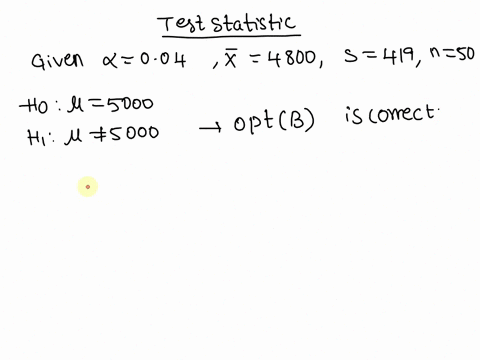 Test statistic
Given α=0.04 , x̄ = 4800, s=419, n=50
H0: μ=5000
H1: μ≠5000 → opt(B) is correct.